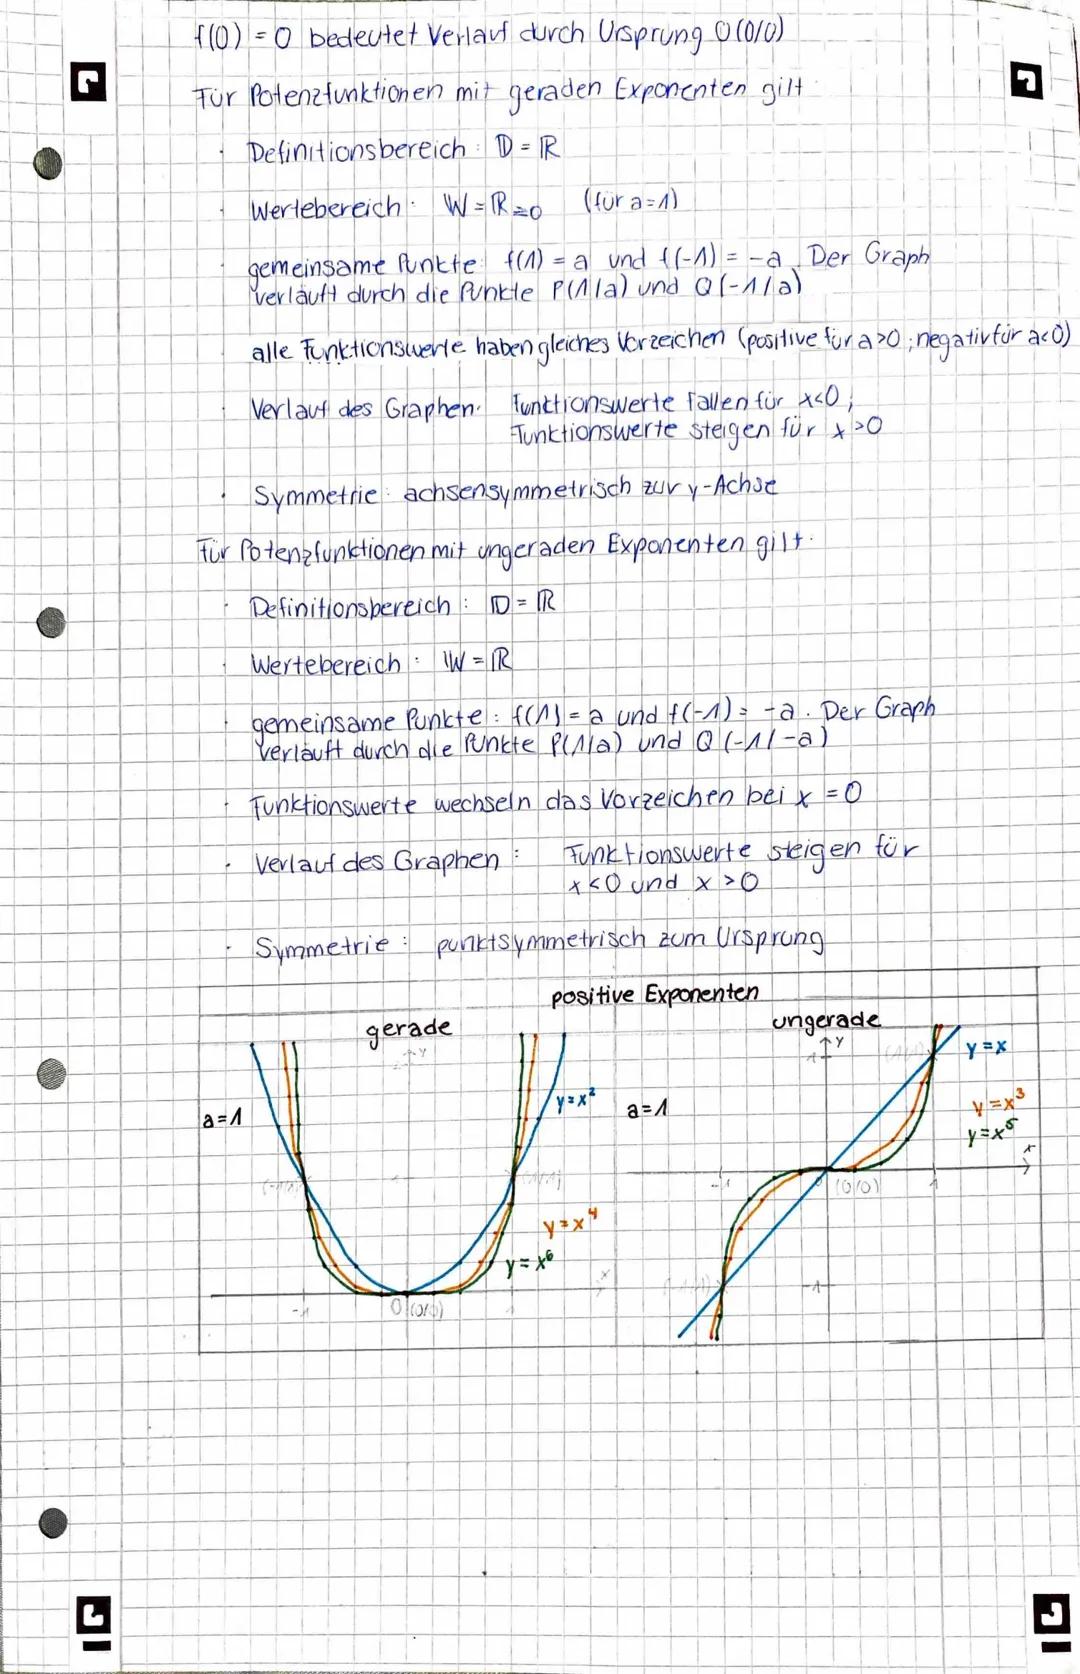 f(0) = 0 bedeutet Verlauf durch Ursprung O(0/0)
Für Potenzfunktionen mit geraden Exponenten gilt:
· Definitionsbereich: 𝔻 = ℝ
· Wertebereich: 𝕎 = ℝ≥0 (für a=1)
· gemeinsame Punkte: f(1) = a und f(-1) = -a. Der Graph
verläuft durch die Punkte P(1/a) und Q(-1/a)
alle Funktionswerte haben gleiches Vorzeichen (positive für a>0; negativ für a<0)
Verlauf des Graphen: Funktionswerte fallen für x<0;
Funktionswerte steigen für x>0
· Symmetrie: achsensymmetrisch zur y-Achse
Für Potenzfunktionen mit ungeraden Exponenten gilt:
· Definitionsbereich: 𝔻 = ℝ
· Wertebereich: 𝕎 = ℝ
· gemeinsame Punkte: f(1) = a und f(-1) = -a. Der Graph
verläuft durch die Punkte P(1/a) und Q(-1/-a)
· Funktionswerte wechseln das Vorzeichen bei x = 0
· Verlauf des Graphen: Funktionswerte steigen für
x<0 und x>0
· Symmetrie: punktsymmetrisch zum Ursprung
positive Exponenten
gerade
ungerade
y
y
y=x
a=1
y=x²
a=1
y=x³
y=x⁵
x
(-1/1)
(1/1)
-1
(0/0)
1
y=x⁴
y=x⁶
x
-1
-1
0 (0/0)
1